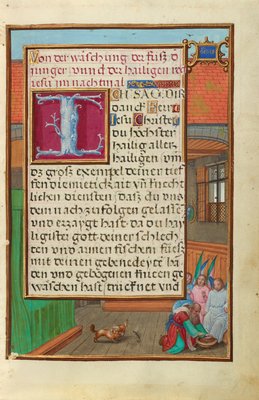 Von der wäschung der fusz d
junger vnnd der heiligen re
iesu im nachtmal
ICh SAG DIR
danck herr
Jesu Christe
du höchster
heilig aller
heiligen vm
dz grosz exempel deiner tief
sten diemietickait vn̄ knecht
lichen diensten, dasz du vns
dem nach zu folgen gelaste
vnd erzaygt hast, da du hay
ligister gott deiner schlech
ten vnd armen fischern füesz
mit deinen gebenedeyte̅ ha
den vnd gebognen knieen ge
waschen hast, trucknet vnd